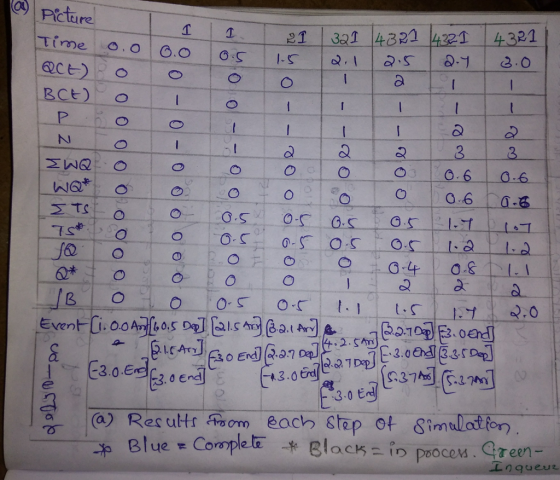 (a) Picture 1 1 21 321 4321 4321 4321
Time 0.0 0.0 0.5 1.5 2.1 2.5 2.7 3.0
Q(t) 0 0 0 0 1 2 1 1
B(t) 0 1 0 1 1 1 1 1
P 0 0 1 1 1 1 2 2
N 0 1 1 2 2 2 3 3
ΣWQ 0 0 0 0 0 0 0.6 0.6
WQ* 0 0 0 0 0 0 0.6 0.6
ΣTS 0 0 0.5 0.5 0.5 0.5 1.7 1.7
TS* 0 0 0.5 0.5 0.5 0.5 1.2 1.2
∫Q 0 0 0 0 0 0.4 0.8 1.1
Q* 0 0 0 0 1 2 2 2
∫B 0 0 0.5 0.5 1.1 1.5 1.7 2.0
Event [1.0.0 Arr] [1.0.5 Dep] [2 1.5 Arr] [3 2.1 Arr] [4.2.5 Arr] [2 2.7 Dep] [-3.0 End]
Calendar [-3.0 End] [2 1.5 Arr] [-3.0 End] [2.2.7 Dep] [2.2.7 Dep] [-3.0 End] [3 3.5 Dep]
[-3.0 End] [-3.0 End] [-3.0 End] [5.3.7 Arr] [5.3.7 Arr]
(a) Results from each step of Simulation.
* Blue = Complete * Black = in process. Green-
Inqueue